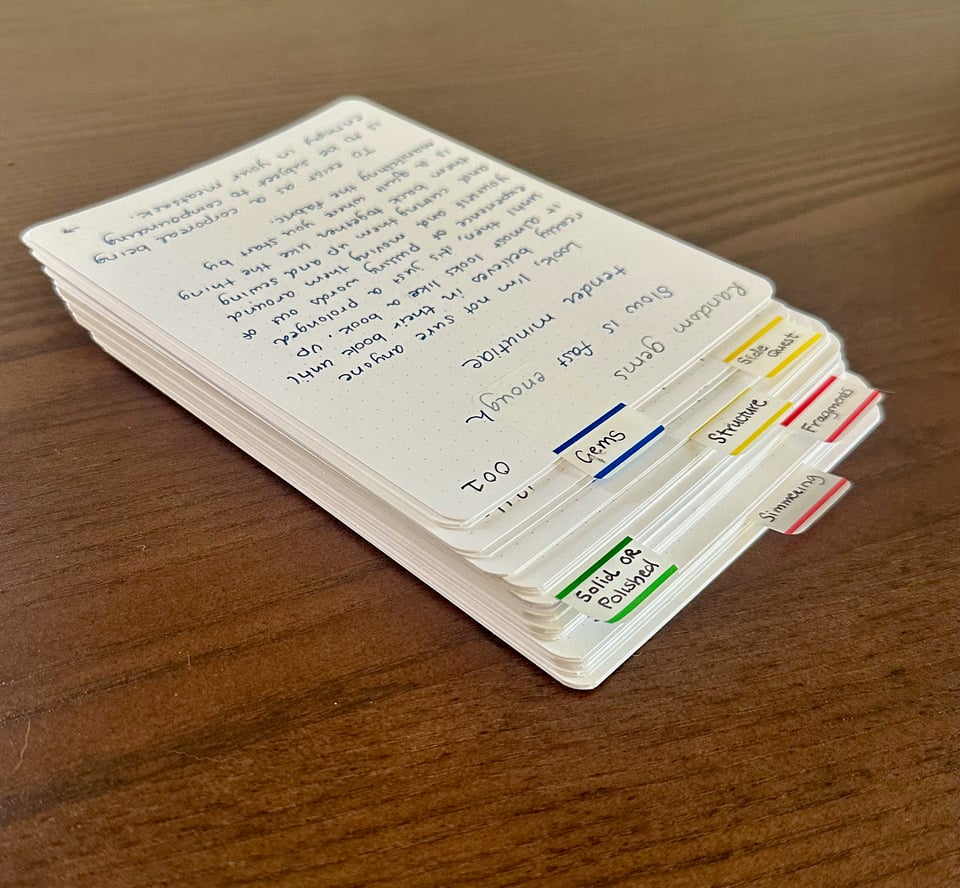 Random gems
001
Slow is fast enough
tender minutiae
Look, I'm not sure anyone
really believes in their book until
it almost looks like a book. Up
until then, it's just a prolonged
experience of putting words out of
yourself and moving them around
and cutting them up and sewing
them back together like the thing
is a quilt where you start by
manifesting the fabric.
To exist as a corporeal being
is to be subject to compounding
entropy in your meatsack.
Side Quest
Gems
Structure
Fragments
Simmering
Solid or
Polished